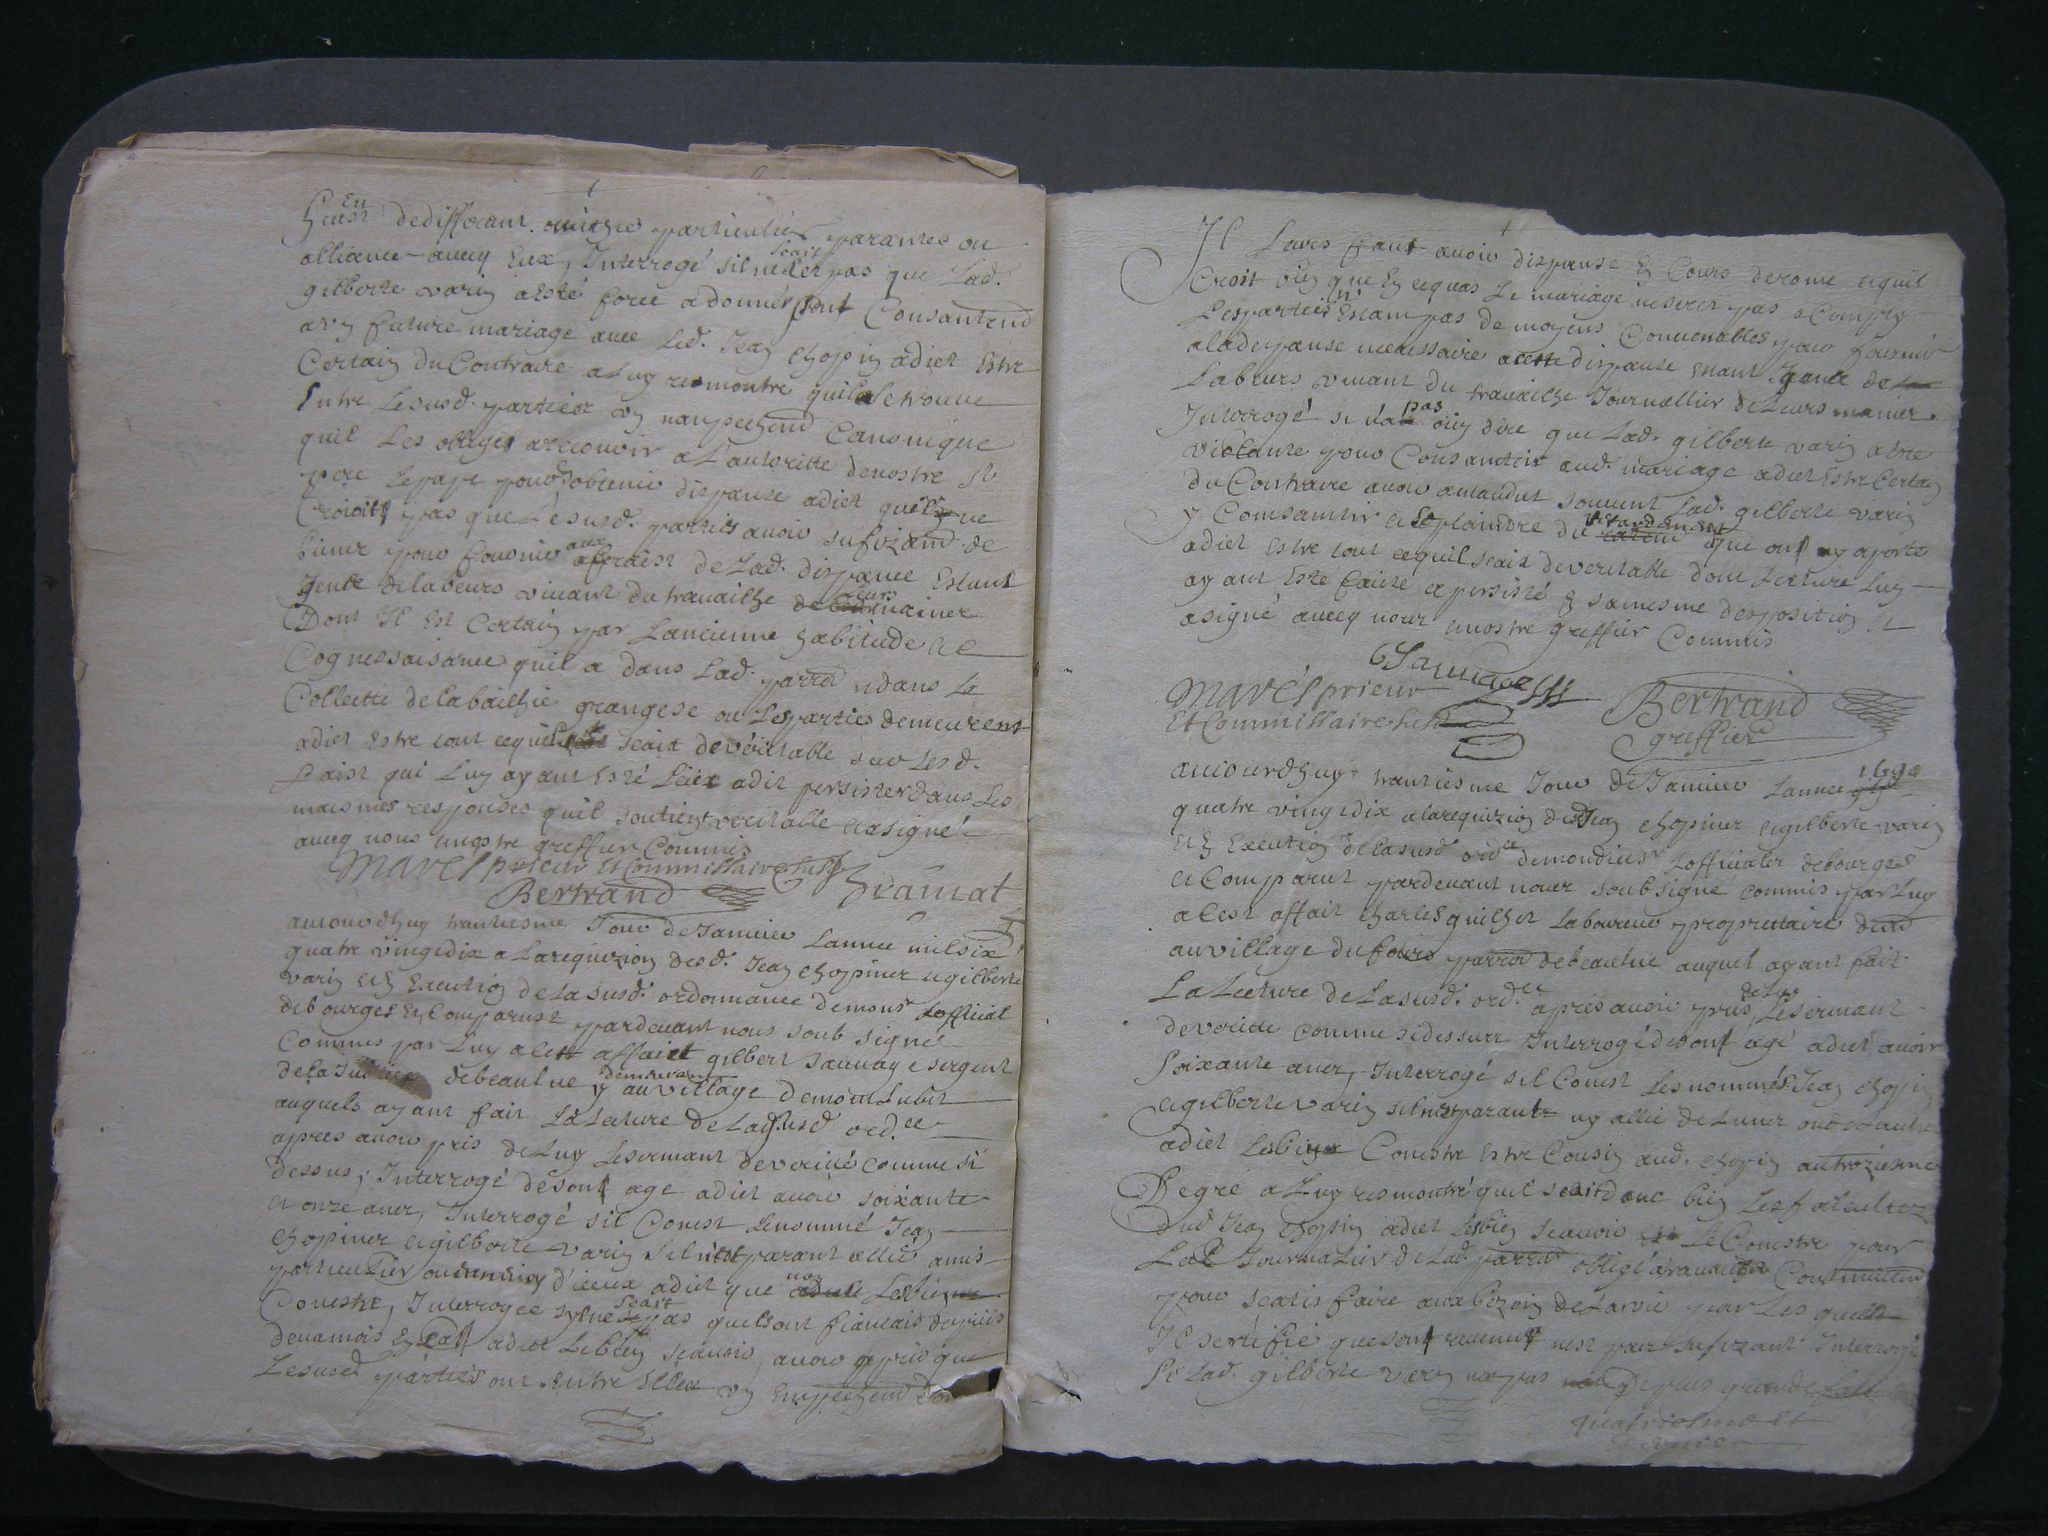 En
dedifferant particulier parantes ou
alliance aucq Eux, Interrogé sil ne scait pas que Lad.
gilberte varin a esté force a donner sont Consantend
a un future mariage avec Led. Jean chopin adiet Estre
Certain du Contraire a Luy remontre quil se trouve
Entre Lesusd. parties un nanpechend Canonique
quil Les oblige arecouvir a L'autoritte denostre St
pere Lepape pour obtenir dispanse adiet quil ne
Croioit pas que Lesusd. parties avoir sufizand de
bienr pour fournir aux fraist de Lad. dispance Estant
gents de labeurs vivant du travailhe de leurs mainer
Dont Il Est Certain par Lancienne habitude et
Cognessaisance quil a dans Lad. parroi et dans La
Collecte de Labailhie grangese ou Les parties demeurent
adiet Estre tout cequil scait deveritable sur Lesd.
faist qui Luy ayant Esté Leüe adit persister dans Les
maismes responses quil soutient veritable et asigné
aucq nous et nostre greffier Commis
Marest prieur Et Commissaire susd Gramat
Bertrand
aujourdhuy trantiesme Jour de Janvier Lannee mil six
quatre vingtdix a Larequizion desd. Jean chopiner et gilberte
varin et En Execution de La susd. ordonnance de monsr Lofficial
de bourges Et Comparust pardevant nous soub signé
Commis par Luy a cest affaire gilbert Sauvage sergent
de la Justice debeaulne y demeurant au village de montlubit
auquels ayant fait La Lecture de Lad. susd ord.ce
apres avoir pris de Luy Lesermant deverité comme si
dessus, Interrogé desont age adiet avoir soixante
et onze aner, Interrogé sil Conest Lenommé Jean
chopiner et gilberte varin sil nest parant allié amis
particulier ou d'iceux adiet que non Lesbien
Conestre, Interrogee syl ne scait pas quelsont fiancais depuis
deuxmois En ca adiet Lebien scavoir avoir apris que
Lesusd parties ont Entre Elles un Empechend Dont
Il Leurs faut avoir dispanse En Cours derome et quil
Croit bien que En cequas Le mariage neseret pas acomply
Lesparties n'Estant pas de moyens Convenables pour fournir
aladepanse necessaire a cette dispanse Estant Jeants de
Labeurs vivant du travailhe Journellier de Leurs mainer.
Interrogé si na pas ouy dire que Lad. gilberte varin a ete
violante pour Consantir aud. mariage adiet Estre Certain
du Contraire avoir antandut souvent Lad. gilberte varin
y Consantir et se plaindre du retardement que ont y aporte
adiet Estre tout cequil scait deveritable dont Lecture Luy
ayant Esté faicte et persisté En sa mesme desposition et
asigné aucq nour et nostre greffier Commis
G Sauvage
Marest prieur
Et Commissaire susd
Bertrand
greffier
aujourdhuy trantiesme Jour de Janvier Lannee 1690
quatre vingtdix a larequizion desd Jean chopiner et gilberte varin
et En Execution de Lasusd ord.ce de mondiesr Lofficialer de bourges
et Comparut pardevant nouer soubsigne commis par Luy
a cest affair charles guilhet Laboureur propriettaire
au village du fours parroi debeaulne auquel ayant fait
La Lecture de La susd. ord.ce apres avoir pris de Luy Lesermant
de verité comme sidessur Interrogé desont agé adiet avoir
soixante aner, Interrogé sil Conest Les nommés Jean chopin
et gilberte varin sil nest parant ny allié de Luner ou de Lautre
adiet Lesbien Conestre Estre Cousin aud. chopin au trozieme
Degré a Luy remontré quil scait donc bien Les facultez
dud Jean chopin adiet Lesbien scavoir et Le Conestre pour
Journalier de Lad. parroi obligé atravailler Continuellem
pour scatisfaire aux bezoin de La vie par Les quels
Il sertifie que sont revenut nest pas sufizant Interrogé
si Lad. gilberte varin na pas de plus grande
quatriesme Et